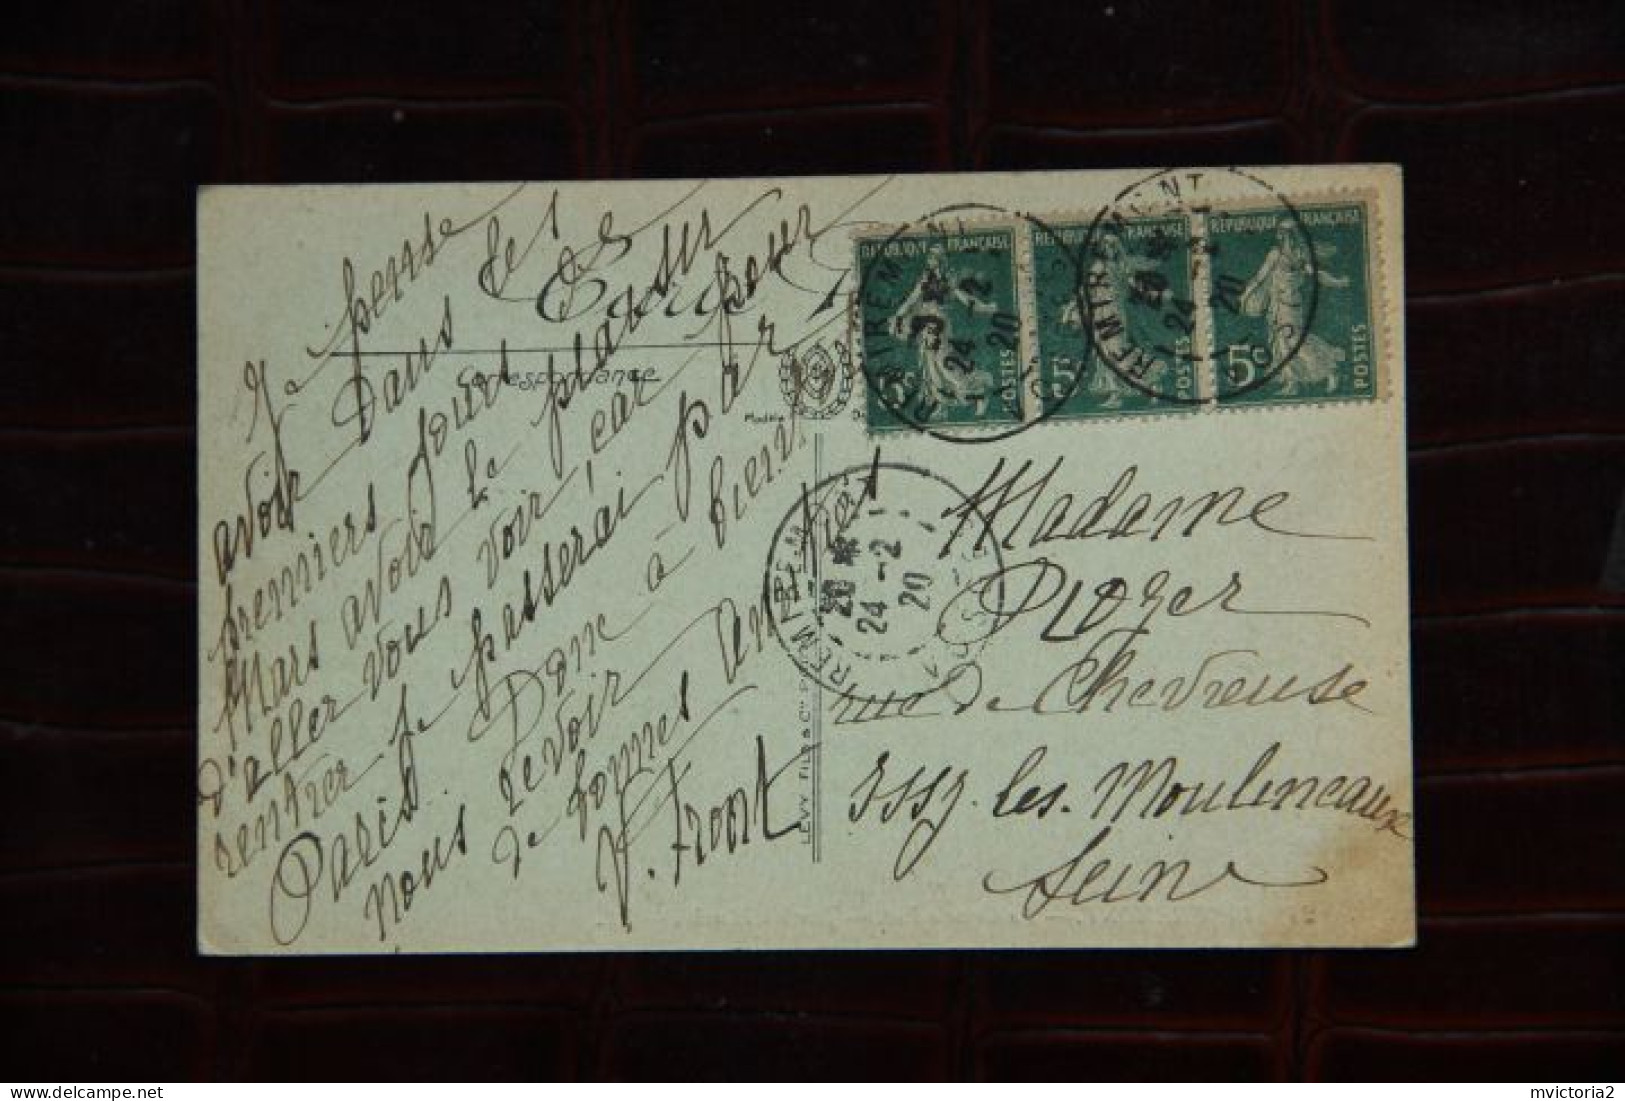 Je pense
avoir Dans les
premiers jours de
Mars avoir le plaisir
d'aller vous voir, car sur
rentrer je passerai par pour
Paris Donc à bientôt
nous revoir
de bonnes Amitiés
V. Front
Carte
Correspondance
LEVY FILS & Cie
REPUBLIQUE FRANÇAISE
5c
POSTES
REPUBLIQUE FRANÇAISE
5c
POSTES
REPUBLIQUE FRANÇAISE
5c
POSTES
REMIREMONT
20
24 -2
20
VOSGES
REMIREMONT
20
24 -2
20
VOSGES
REMIREMONT
20
24 -2
20
VOSGES
Madame
Roger
rue de Chevreuse
Issy. les. Moulineaux
Seine
delcampe.net
mvictoria2